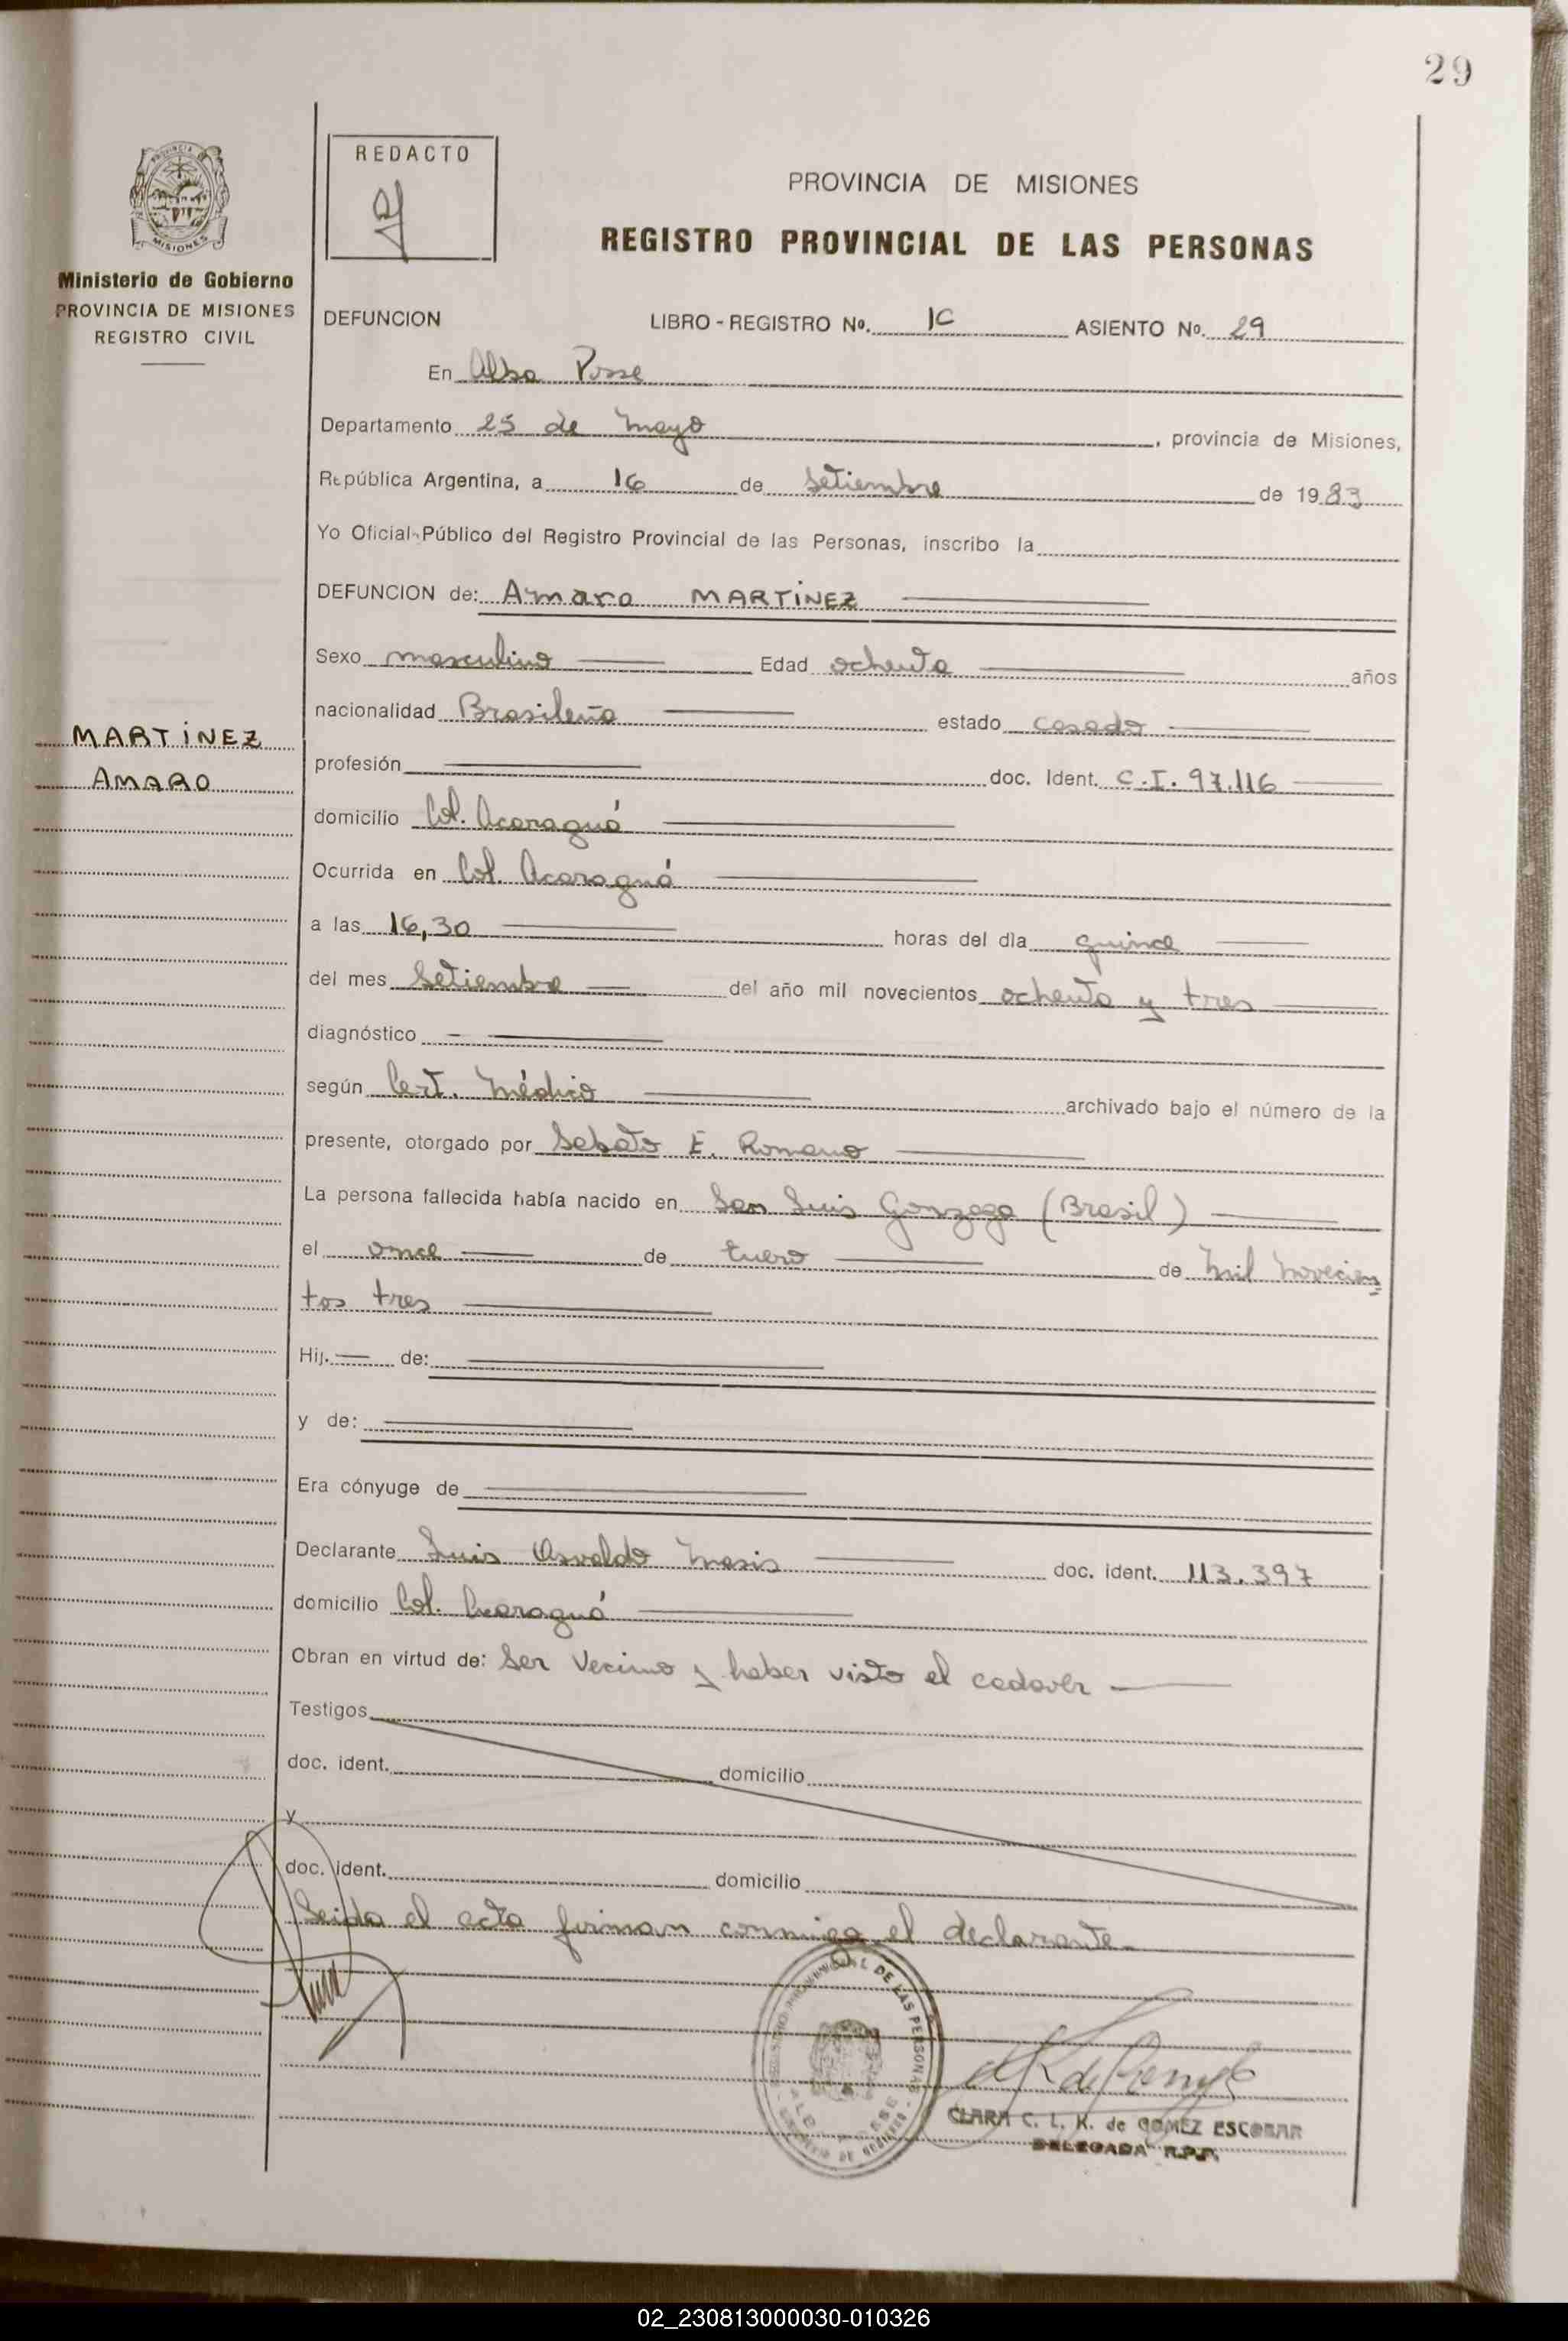 29
REDACTO
PROVINCIA DE MISIONES
REGISTRO PROVINCIAL DE LAS PERSONAS
MISIONES
Ministerio de Gobierno
PROVINCIA DE MISIONES
REGISTRO CIVIL
DEFUNCION LIBRO - REGISTRO Nº. 1C ASIENTO Nº. 29
En Alba Posse
Departamento 25 de Mayo, provincia de Misiones,
República Argentina, a 16 de Setiembre de 1983
Yo Oficial Público del Registro Provincial de las Personas, inscribo la
DEFUNCION de: Amaro MARTINEZ
Sexo masculino Edad ochenta años
nacionalidad Brasileña estado casado
MARTINEZ
AMARO
profesión doc. Ident. C.I. 97.116
domicilio Col. Acaraguá
Ocurrida en Col. Acaraguá
a las 16,30 horas del día quince
del mes Setiembre del año mil novecientos ochenta y tres
diagnóstico
según Cert. Médico archivado bajo el número de la
presente, otorgado por Sebato E. Romano
La persona fallecida había nacido en San Luis Gonzaga (Brasil)
el once de Enero de Mil Novecien
tos tres
Hij. de:
y de:
Era cónyuge de
Declarante Luis Osvaldo doc. ident. 113.397
domicilio Col. Acaraguá
Obran en virtud de: Ser Vecino y haber visto el cadaver
Testigos
doc. ident. domicilio
y
doc. ident. domicilio
Leida el acta firman conmigo el declarante
CLARA C. L. K. de GOMEZ ESCOBAR
DELEGADA R.P.P.
02_230813000030-010326